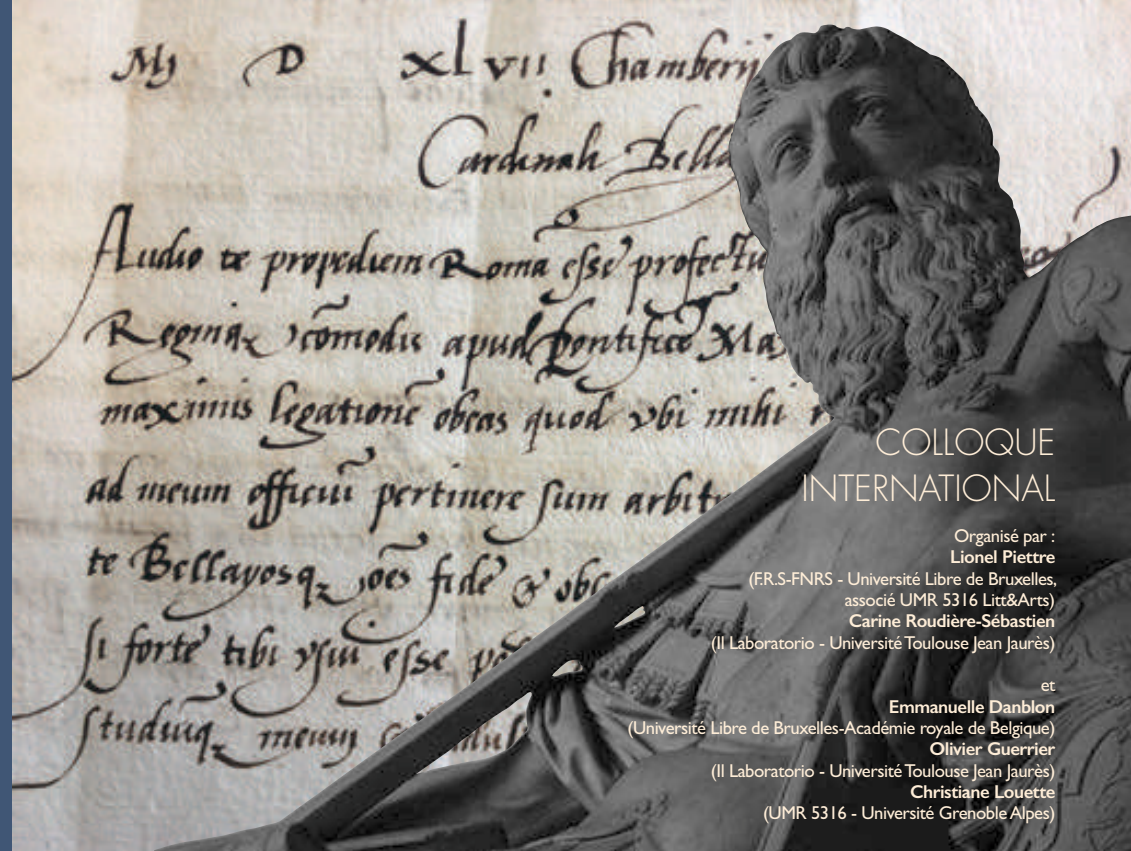 M D xlvii Chamberij
Cardinali Bella
Audio te propediem Romã esse profectu
Reginæ cõmodis apud Põntificẽ Ma
maximis legationẽ obeas quod vbi mihi
ad meum officiũ pertinere sum arbit
te Bellayosq; oẽs fide &
si forte tibi vsui esse
studiuq; meum
COLLOQUE
INTERNATIONAL
Organisé par :
Lionel Piettre
(F.R.S-FNRS - Université Libre de Bruxelles,
associé UMR 5316 Litt&Arts)
Carine Roudière-Sébastien
(Il Laboratorio - Université Toulouse Jean Jaurès)
et
Emmanuelle Danblon
(Université Libre de Bruxelles-Académie royale de Belgique)
Olivier Guerrier
(Il Laboratorio - Université Toulouse Jean Jaurès)
Christiane Louette
(UMR 5316 - Université Grenoble Alpes)